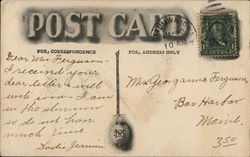 POST CARD
FOR CORRESPONDENCE
FOR ADDRESS ONLY
Dear Mrs Ferguson-
I received your
dear letter & will
write soon. I am
in the
so do not have
much time
Sadie Jeannie
Mrs Georganna Ferguson,
Bar Harbor
Maine.
350
10 AM